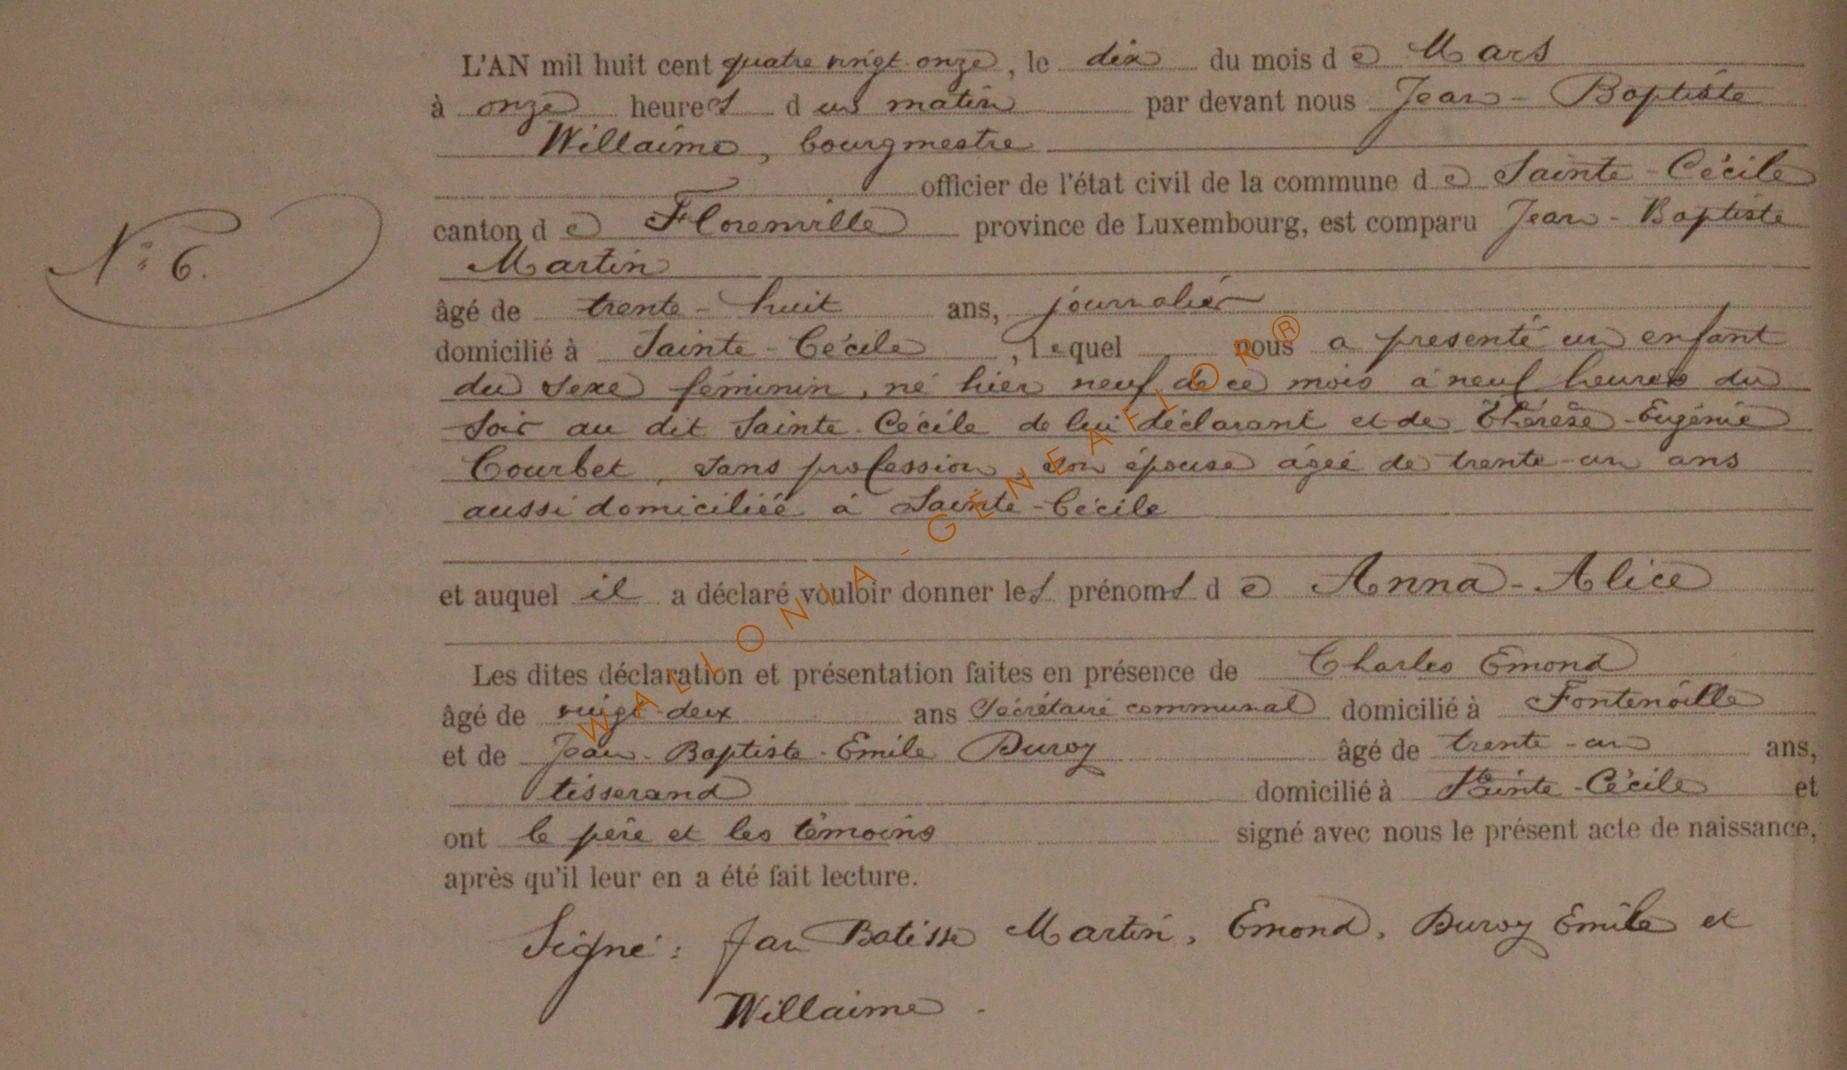 L'AN mil huit cent quatre vingt onze, le dix du mois de Mars
à onze heures du matin par devant nous Jean-Baptiste
Willaime, bourgmestre
officier de l'état civil de la commune de Sainte-Cécile
canton de Florenville province de Luxembourg, est comparu Jean-Baptiste
Martin
N° 6.
âgé de trente-huit ans, journalier
domicilié à Sainte-Cécile, lequel nous a présenté un enfant
du sexe féminin, né hier neuf de ce mois à neuf heures du
soir au dit Sainte-Cécile de lui déclarant et de Thérèse-Eugénie
Courbet, sans profession, son épouse âgée de trente-un ans
aussi domiciliée à Sainte-Cécile
et auquel il a déclaré vouloir donner les prénoms de Anna-Alice
Les dites déclaration et présentation faites en présence de Charles Emond
âgé de vingt-deux ans Secrétaire communal domicilié à Fontenoille
et de Jean-Baptiste-Emile Duroy âgé de trente-un ans,
tisserand domicilié à Sainte-Cécile et
ont le père et les témoins signé avec nous le présent acte de naissance,
après qu'il leur en a été fait lecture.
Signé : Jan Batisse Martin, Emond, Duroy Emile et
Willaime.
WALLONIA-GENEAFLOR®